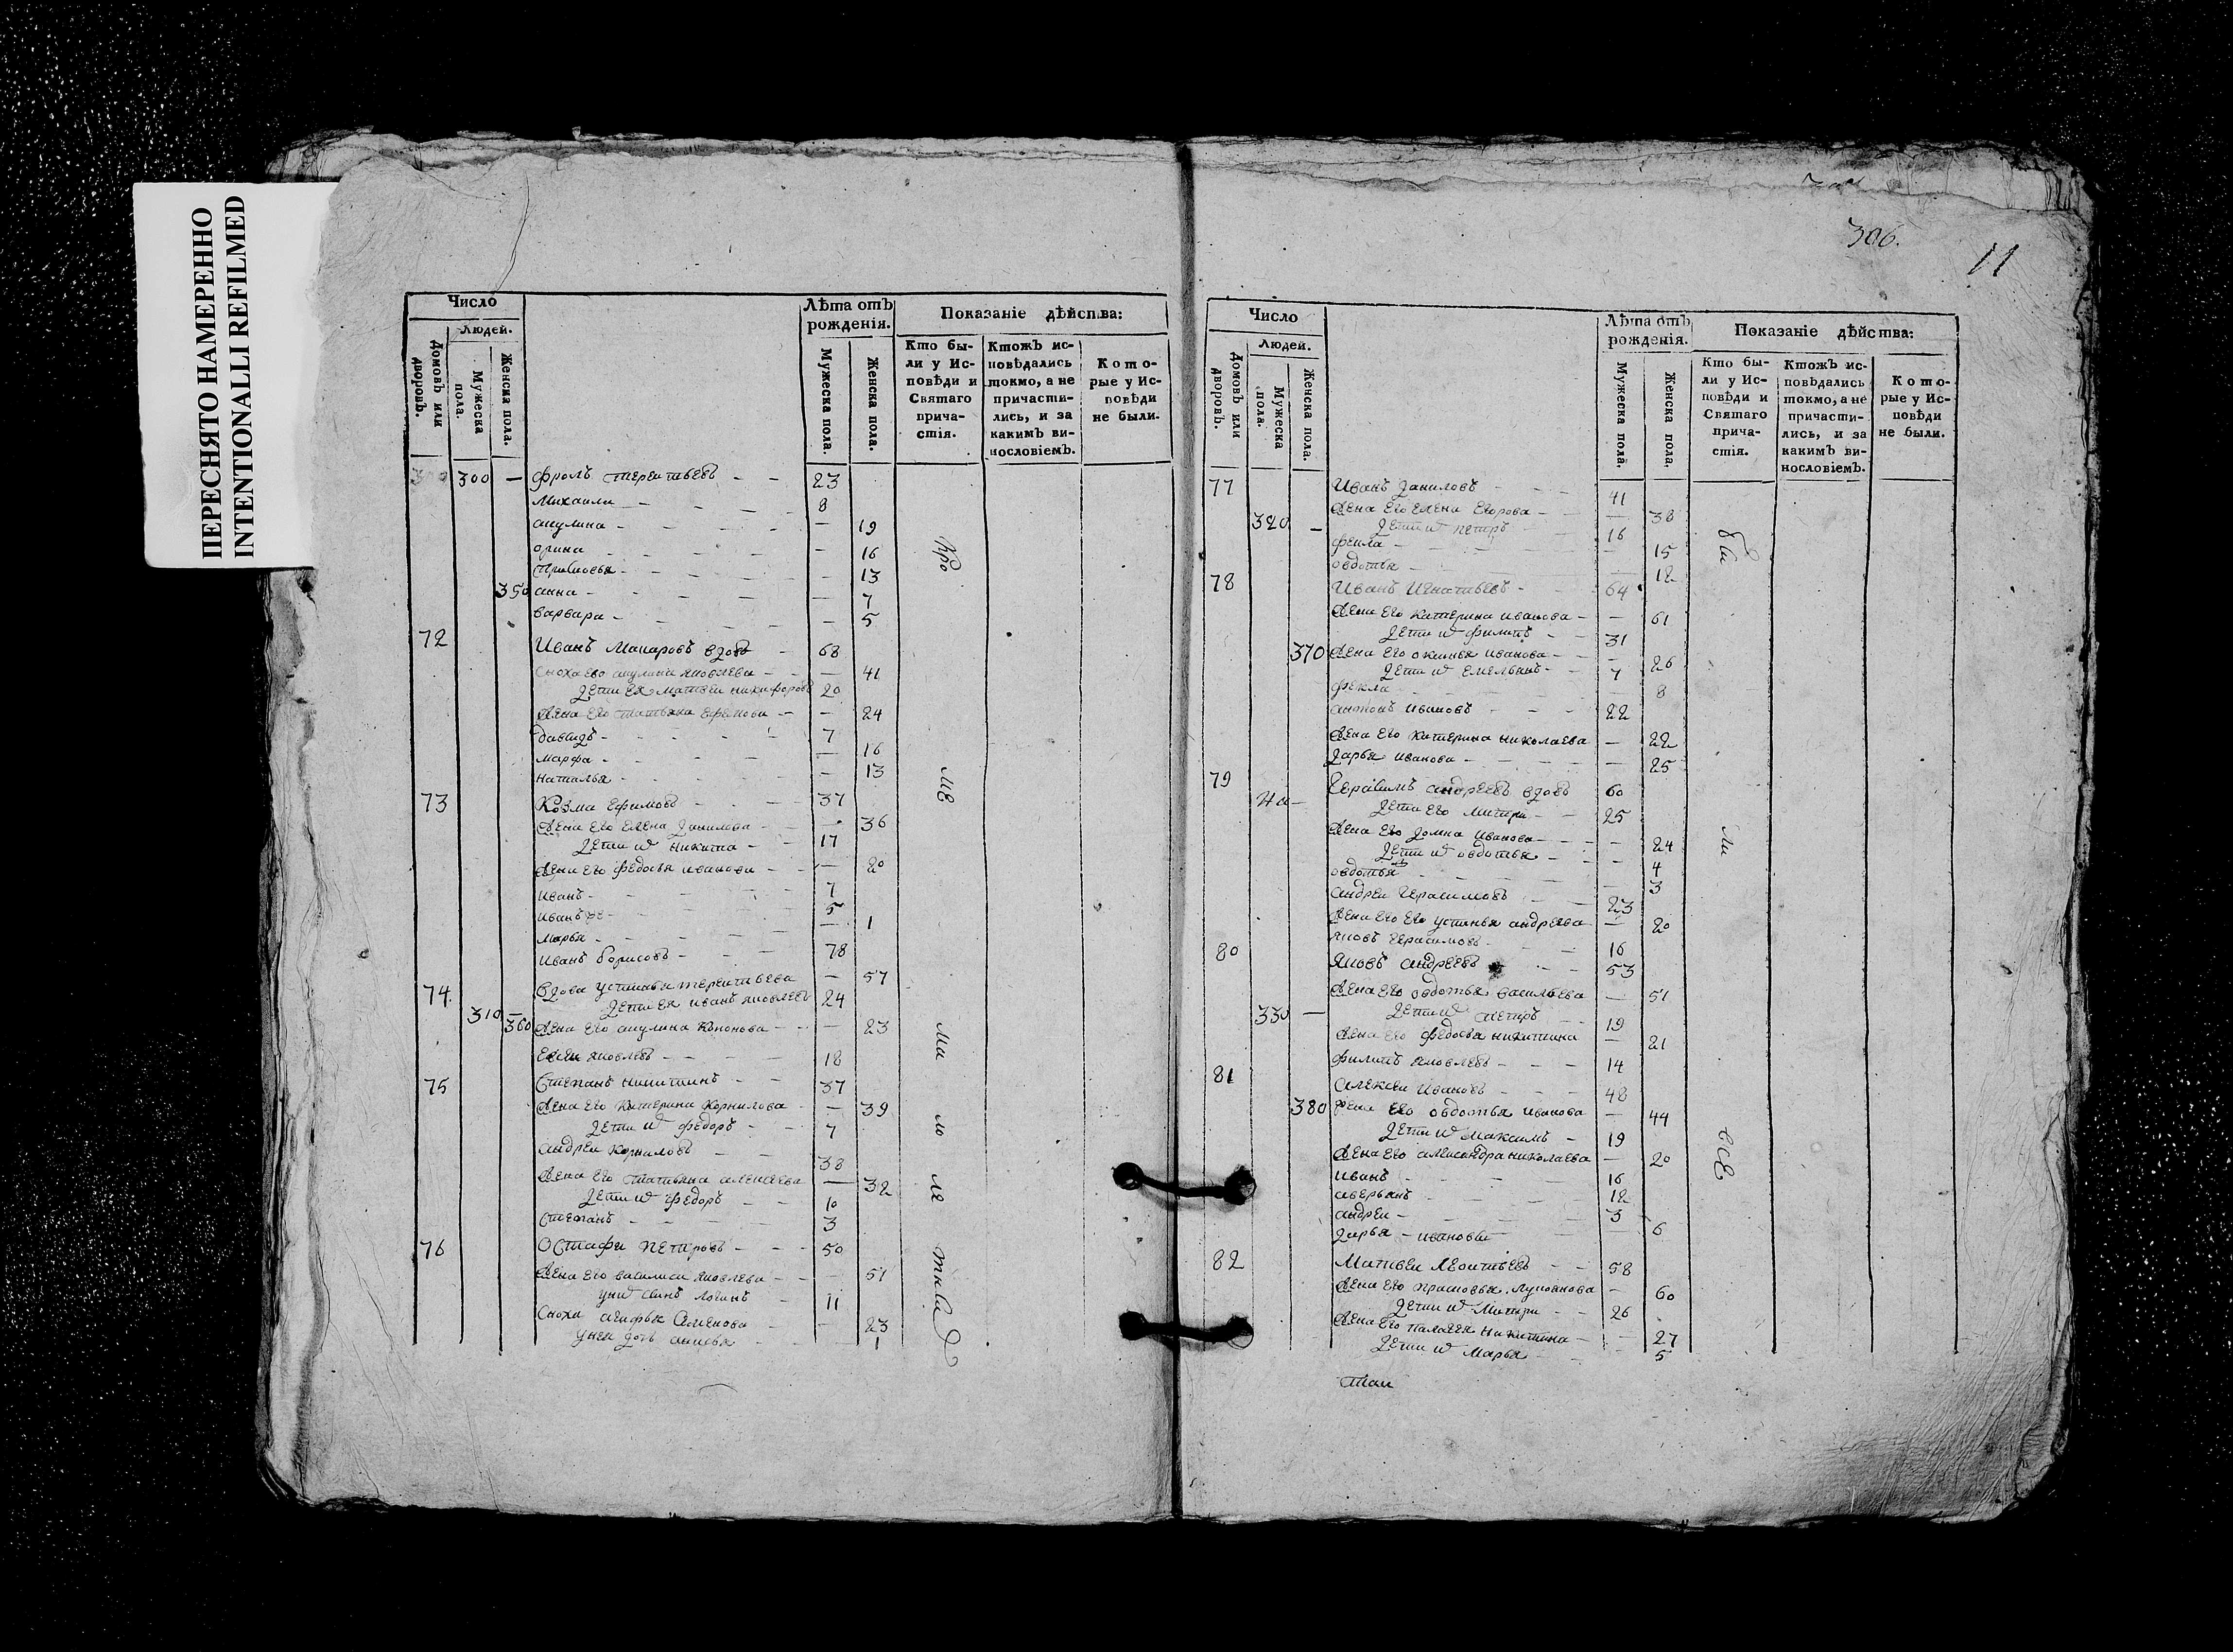 ПЕРЕСНЯТО НАМЕРЕННО
INTENTIONALLI REFILMED
Число
Лѣта отъ рожденія.
Показаніе дѣйства:
Людей.
Домовъ или дворовъ.
Мужеска пола.
Женска пола.
Мужеска пола.
Женска пола.
Кто были у Исповѣди и Святаго причастія.
Ктожъ исповѣдались токмо, а не причастились, и за какимъ винословіемъ.
Которые у Исповѣди не были.
300 — Фролъ Терентьевъ — — 23
Михаила — — — 8
акулина — — — 19
орина — — — 16
Прасковья — — — 13
350 анна — — — 7
варвара — — — 5
72 Иванъ Макаровъ вдовъ — 68
Сноха его акулина яковлева — — 41
дети ея матвеи никифоровъ 20
жена его татьяна ефремова — — 24
давидъ — — — 7
марфа — — — 16
наталья — — — 13
73 Козма Ефимовъ — — 37
жена его елена данилова — — 36
дети ихъ никита — — 17
жена его федосья иванова — — 20
иванъ — — — 7
иванъ — — — 5
марья — — — 1
иванъ борисовъ — — 78
74 вдова устинья терентьева — 57
дети ея иванъ яковлевъ 24
310 — 360 жена его акулина Кононова — — 23
яковлевъ — — — 18
75 Степанъ никитинъ — — 37
жена его катерина Корнилова — — 39
дети ихъ федоръ — — 7
андреи Корниловъ — — 38
жена его татьяна алексеева — 32
дети ихъ федоръ — — 10
Степанъ — — — 3
76 Остафи Петровъ — — 50
жена его василиса яковлева — — 51
у них сынъ логинъ — 11
Сноха агафья Семенова — — 23
у неи дочь — — 1
306.
11
Число
Лѣта отъ рожденія.
Показаніе дѣйства:
Людей.
Домовъ или дворовъ.
Мужеска пола.
Женска пола.
Мужеска пола.
Женска пола.
Кто были у Исповѣди и Святаго причастія.
Ктожъ исповѣдались токмо, а не причастились, и за какимъ винословіемъ.
Которые у Исповѣди не были.
77 Иванъ Даниловъ — — 41
жена его елена Егорова — — 38
320 — дети ихъ петръ — 16
фекла — — — 15
овдотья — — — 12
78 Иванъ Игнатьевъ — — 64
жена его катерина иванова — — 61
дети ихъ филипъ — — 31
370 жена его иванова — — 26
дети ихъ Емельянъ — — 7
фекла — — — 8
антонъ ивановъ — — — 22
жена его катерина николаева — 22
дарья иванова — — — 25
79 Герасимъ андреевъ вдовъ 60
дети его митри — — 25
жена его домна иванова — — 24
дети ихъ овдотья — — — 4
овдотья — — — 3
андреи Герасимовъ — — 23
жена его его устинья андреева — 20
яковъ герасимовъ — — 16
80 Яковъ андреевъ — — 53
жена его овдотья васильева — 51
330 — дети ихъ петръ — — 19
жена его федосья никитина — 21
филипъ яковлевъ — — — 14
81 алексеи Ивановъ — — — 48
380 жена его овдотья иванова — 44
дети ихъ максимъ — 19
жена его александра николаева — 20
иванъ — — — 16
аверьянъ — — — 12
андреи — — — 3
дарья — ивановы — 6
82 Матвеи Леонтьевъ — — 58
жена его прасковья — 60
дети ихъ Митри — — 26
жена его палагея никитина — — 27
дети ихъ Марья — — 5